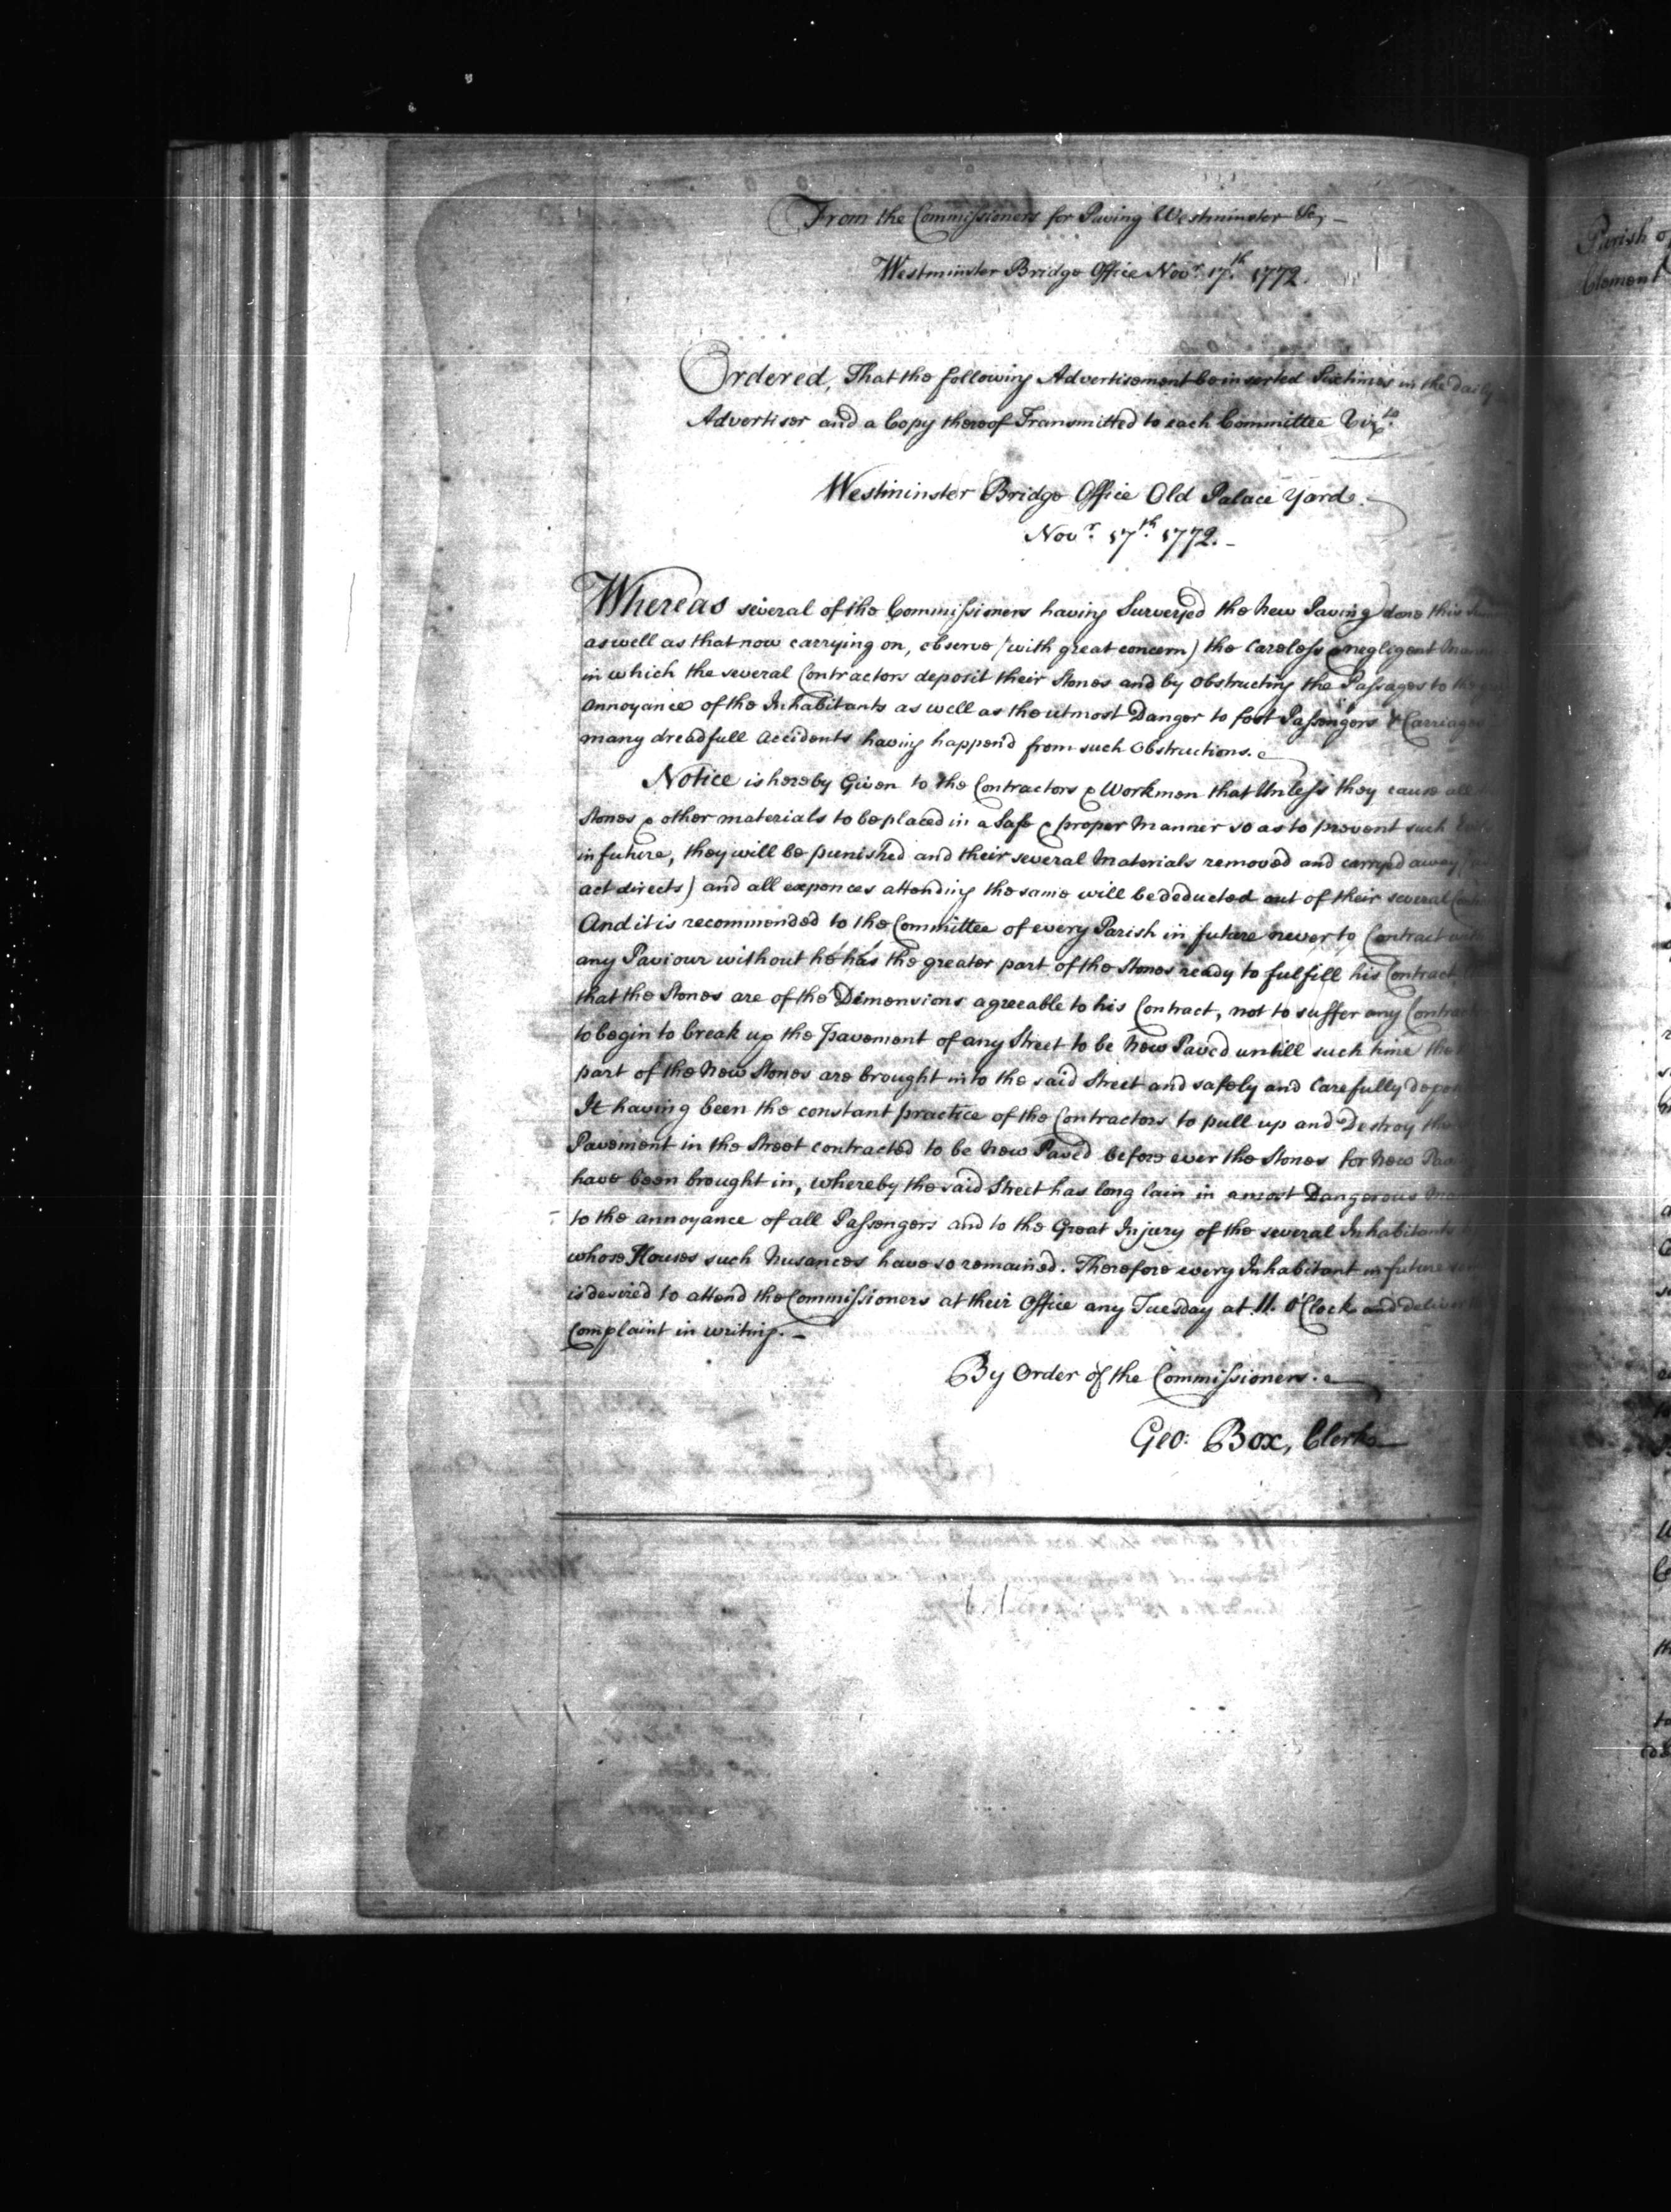 From the Commissioners for Paving Westminster &c, -
Westminster Bridge Office Novr. 17th. 1772.
Ordered, That the following Advertisement be inserted Six times in the daily
Advertiser and a Copy thereof Transmitted to each Committee Vizt.
Westminster Bridge Office Old Palace Yard.
Novr. 17th. 1772. -
Whereas several of the Commissioners having Surveyed the New Paving done this
as well as that now carrying on, observe (with great concern) the Careless & negligent
in which the several Contractors deposit their Stones and by Obstructing the Passages to the
Annoyance of the Inhabitants as well as the utmost Danger to foot Passengers & Carriages
many dreadfull Accidents having happend from such Obstructions.
Notice is hereby Given to the Contractors & Workmen that Unless they cause all
Stones & other materials to be placed in a Safe & proper Manner so as to prevent such
in future, they will be punished and their several Materials removed and carryed away
act directs) and all expences attending the same will be deducted out of their several
And it is recommended to the Committee of every Parish in future never to Contract with
any Paviour without he has the greater part of the Stones ready to fulfill his Contract
that the Stones are of the Dimensions agreeable to his Contract, not to suffer any
to begin to break up the Pavement of any Street to be New Paved untill such time
part of the New Stones are brought into the said Street and safely and Carefully
It having been the constant practice of the Contractors to pull up and Destroy
Pavement in the Street contracted to be New Paved before ever the Stones for New
have been brought in, whereby the said Street has long lain in a most Dangerous
to the annoyance of all Passengers and to the Great Injury of the several Inhabitants
whose Houses such Nusances have so remained. Therefore every Inhabitant in future
is desired to attend the Commissioners at their Office any Tuesday at 11. o'Clock and deliver
Complaint in writing. -
By Order of the Commissioners.
Geo: Box, Clerk
Parish
Clement